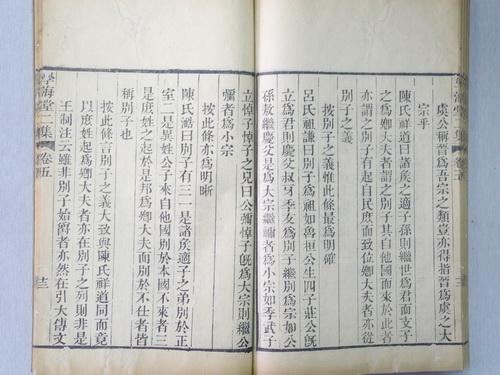 虞公稱晉爲吾宗之類豈亦得指晉爲虞之大
宗乎
陳氏祥道曰諸矦之適子孫則繼世爲君而支子
之爲卿大夫者謂之别子其自他國而來於此者
亦謂之别子有起自民庶而致位卿大夫者亦從
别子之義
按别子之義惟此條最爲明確
呂氏祖謙曰别子爲祖如魯桓公生四子莊公旣
立爲君則慶父叔牙季友爲别子繼别爲宗如公
孫敖繼慶父是爲大宗繼禰者爲小宗如季武子
立悼子悼子之兄曰公彌悼子旣爲大宗則繼公
彌者爲小宗
按此條亦爲明晰
陳氏澔曰别子有三一是諸矦適子之弟别於正
室二是異姓公子來自他國别於本國不來者三
是庶姓之起於是邦爲卿大夫而别於不仕者皆
稱别子也
按此條言别子之義大致與陳氏祥道同而竟
以庶姓起爲卿大夫者亦在别子之列則非是
王制注云雖非别子始爵者亦然在引大傳文
學海堂二集 卷五 十三